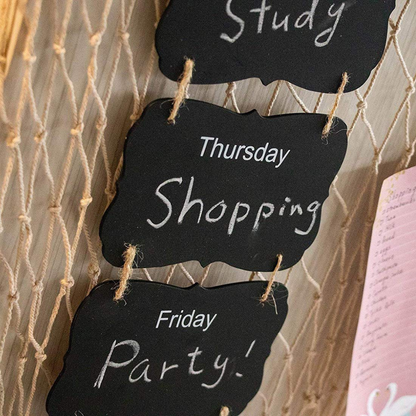 Study
Thursday
Shopping
Friday
Party!